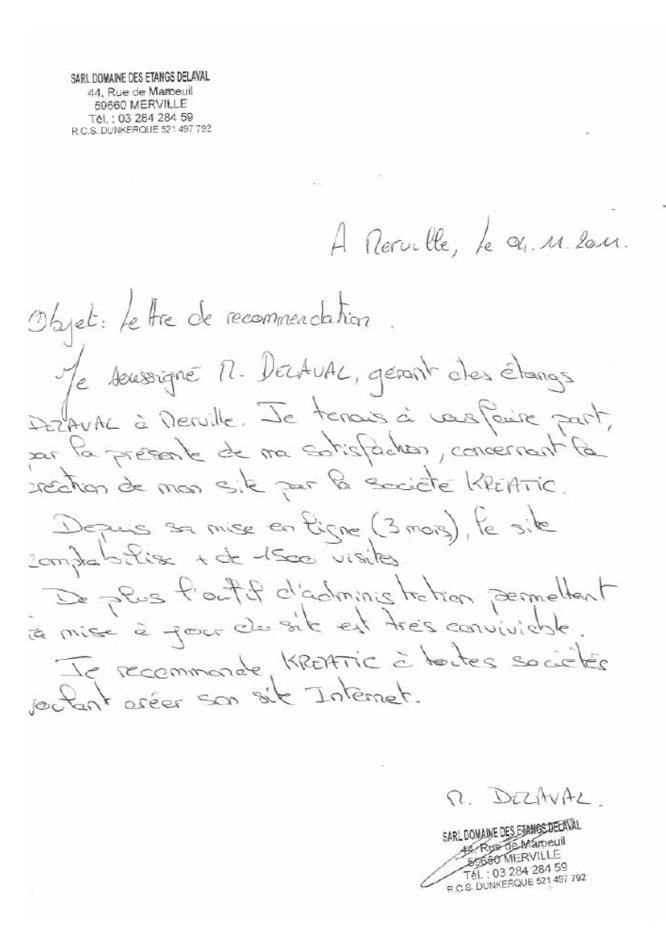 SARL DOMAINE DES ETANGS DELAVAL
44, Rue de Marœuil
59660 MERVILLE
Tél. : 03 284 284 59
R.C.S. DUNKERQUE 521 497 792
A Merville, le 04.11.2011.
Objet: lettre de recommendation.
Je soussigné M. DELAVAL, gérant des étangs
DELAVAL à Merville. Je tenais à vous faire part,
par la présente de ma satisfaction, concernant la
création de mon site par la société KREATIC.
Depuis sa mise en ligne (3 mois), le site
comptabilise + de 1500 visites
De plus l'outil d'administration permettant
la mise à jour du site est très conviviable.
Je recommande KREATIC à toutes sociétés
voulant créer son site Internet.
M. DELAVAL.
SARL DOMAINE DES ETANGS DELAVAL
44, Rue de Marœuil
59660 MERVILLE
Tél. : 03 284 284 59
R.C.S. DUNKERQUE 521 497 792